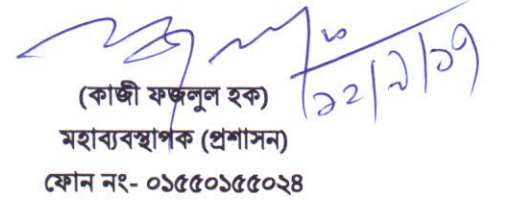 ১২/৯/১৭
(কাজী ফজলুল হক)
মহাব্যবস্থাপক (প্রশাসন)
ফোন নং- ০১৫৫০১৫৫০২৪